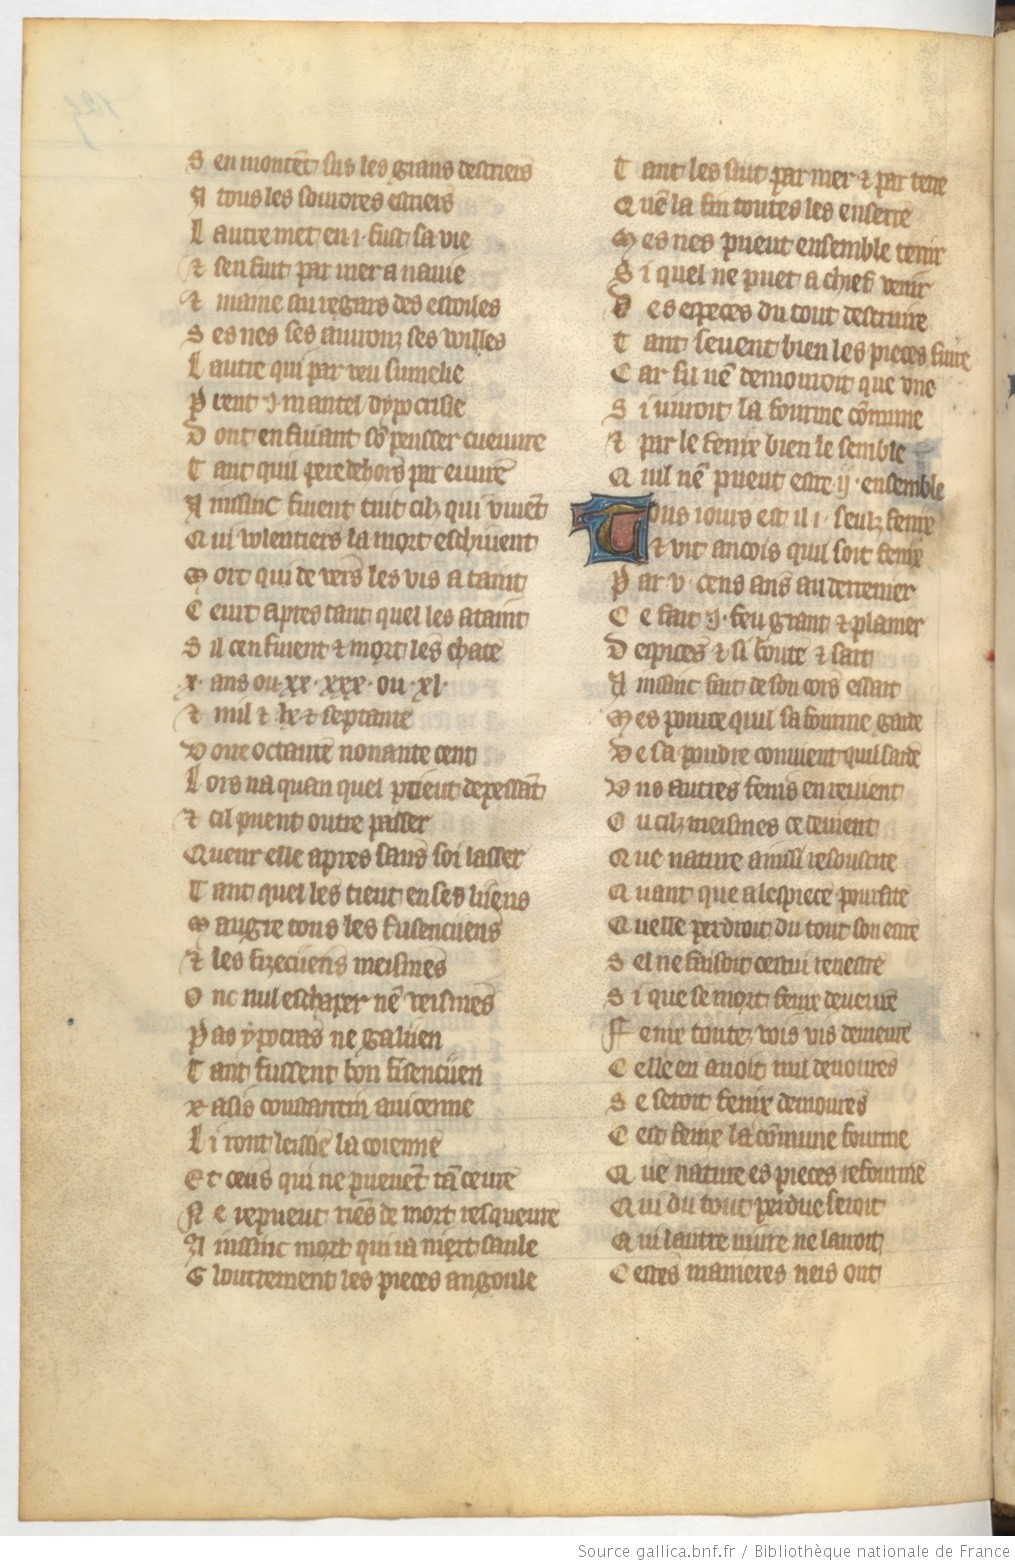 S en montēt sus les grans destriers
A tous les souvores estriers
L autre met en .i. fust sa vie
⁊ sen fuit par mer a navie
⁊ maine au regars des estoiles
S es nes ses avironz ses voilles
L autre qui par veu sumelie
P rent .i. mantel dypocrisie
D ont en fuiant sō pensser cueuvre
T ant quil pere dehors par euvre
A inssinc fuient tuit cilz qui vivēt
Q ui volentiers la mort eschivent
M ort qui de vers les vis a taint
C eurt apres tant quel les ataint
S il cen fuient ⁊ mort les chace
x. ans ou xx. xxx. ou .xl.
⁊ mil ⁊ lx ⁊ septante
V oire octante nonante cent
L ors va quan quel ptient depessāt
⁊ cil puent outre passer
Q ueur elle apres sans soi lasser
T ant quel les tient en ses liens
M augre tous les fusenciiens
⁊ les fizeciiens meismes
O nc nul eschaper nē veismes
P as ypocras ne galien
T ant fussent bon fisenciien
R asis constantin avicenne
L i ront leissie la coienne
Et ceus qui ne pueuēt tā ceure
N e repueut riēs de mort resqueurre
A inssinc mort qui ia niert saule
G loutement les pieces angoule
T ant les suit par mer ⁊ par terre
Q uē la fin toutes les enserre
M es nes pueut ensemble tenir
S i quel ne puet a chief venir
D es especes du tout destruire
T ant sevent bien les pieces fuire
C ar sil nē demouroit que une
S i vivroit la fourme cōmune
⁊ par le fenix bien le semble
Q uil nē pueut estre .ij. ensemble
Tous iours est il .i. seulz fenix
⁊ vit ancois quil soit fenix
P ar v. cens ans au derrenier
C e fait .i. feu grant ⁊ planier
D espices ⁊ si boute ⁊ sart
A inssinc fait de son cors essart
M es pource quil sa fourme garde
D e sa poudre convient quil sarde
U ns autres fenis en revient
O u cilz meismes ce devient
Q ue nature ainssi resouscite
Q uant que a lespiece pourfite
Q uelle perdroit du tout son estre
S el ne faisoit cestui renestre
S i que se mort fenix deveure
F enix toutez vois vis demeure
C elle en avoit mil devoures
S e seroit fenix demoures
C est fenix la cōmune fourme
Q ue nature es pieces refourme
Q ui du tout perdue seroit
Q ui lautre vivre ne lairoit
C estes manieres neis ont
Source gallica.bnf.fr / Bibliothèque nationale de France